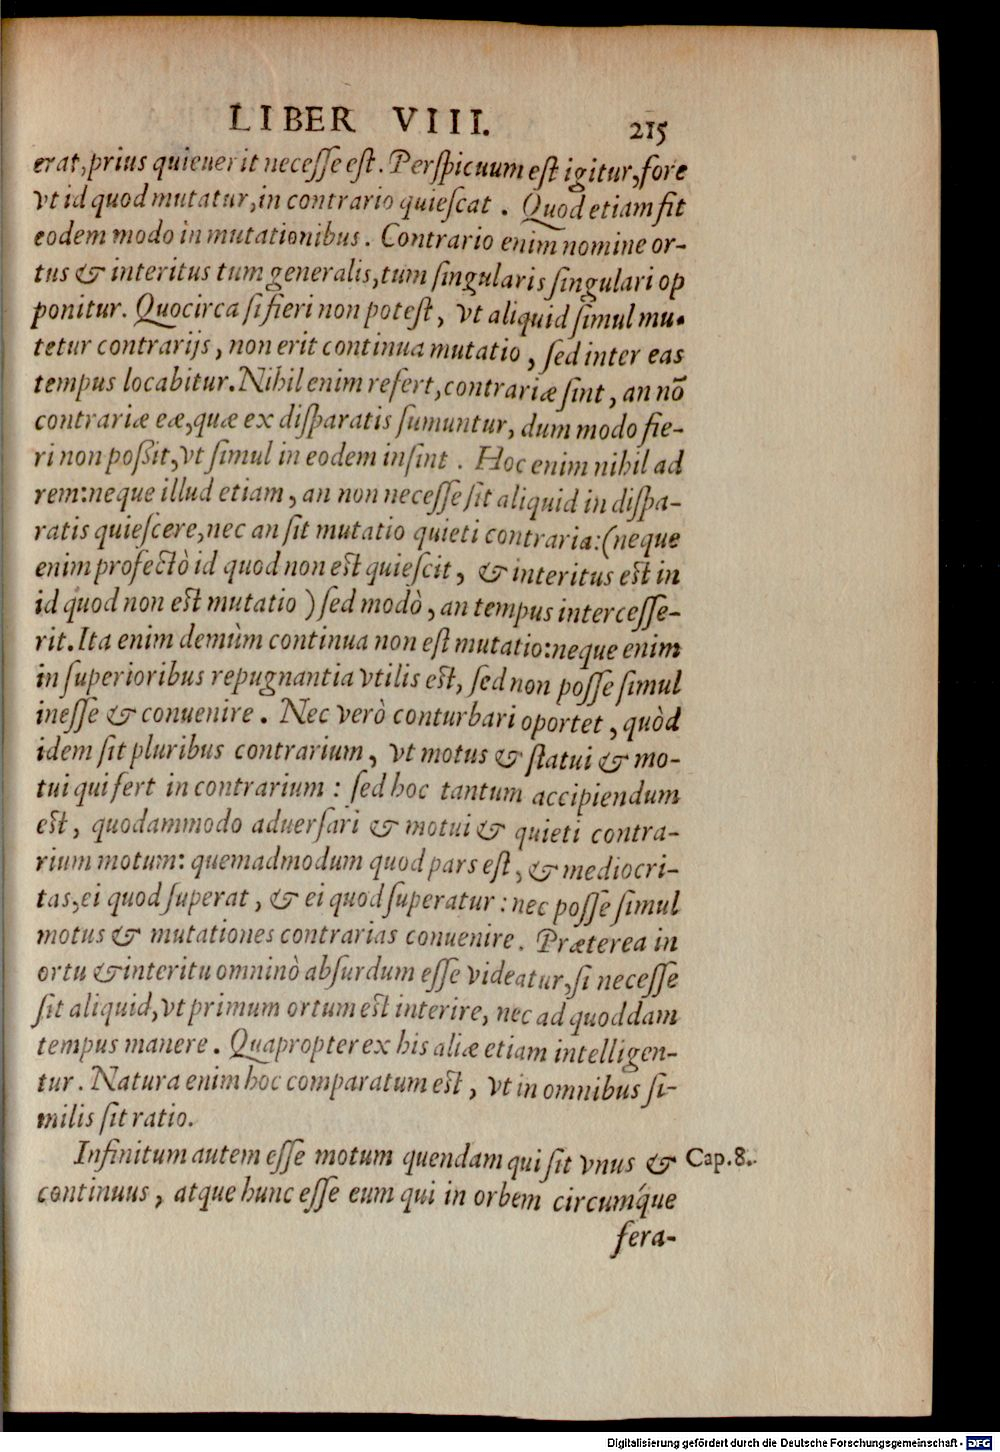 LIBER VIII. 215
erat, prius quieuerit necesse est. Perspicuum est igitur, fore
vt id quod mutatur, in contrario quiescat. Quod etiam fit
eodem modo in mutationibus. Contrario enim nomine or-
tus & interitus tum generalis, tum singularis singulari op
ponitur. Quocirca si fieri non potest, vt aliquid simul mu-
tetur contrarijs, non erit continua mutatio, sed inter eas
tempus locabitur. Nihil enim refert, contrariæ sint, an nõ
contrariæ eæ, quæ ex disparatis sumuntur, dum modo fie-
ri non possit, vt simul in eodem insint. Hoc enim nihil ad
rem: neque illud etiam, an non necesse sit aliquid in dispa-
ratis quiescere, nec an sit mutatio quieti contraria: (neque
enim profectò id quod non est quiescit, & interitus est in
id quod non est mutatio) sed modò, an tempus intercesse-
rit. Ita enim demùm continua non est mutatio: neque enim
in superioribus repugnantia vtilis est, sed non posse simul
inesse & conuenire. Nec verò conturbari oportet, quòd
idem sit pluribus contrarium, vt motus & statui & mo-
tui qui fert in contrarium: sed hoc tantum accipiendum
est, quodammodo aduersari & motui & quieti contra-
rium motum: quemadmodum quod pars est, & mediocri-
tas, ei quod superat, & ei quod superatur: nec posse simul
motus & mutationes contrarias conuenire. Præterea in
ortu & interitu omninò absurdum esse videatur, si necesse
sit aliquid, vt primum ortum est interire, nec ad quoddam
tempus manere. Quapropter ex his aliæ etiam intelligen-
tur. Natura enim hoc comparatum est, vt in omnibus si-
milis sit ratio.
Infinitum autem esse motum quendam qui sit vnus & Cap.8.
continuus, atque hunc esse eum qui in orbem circumq́ue
fera-
Digitalisierung gefördert durch die Deutsche Forschungsgemeinschaft - DFG